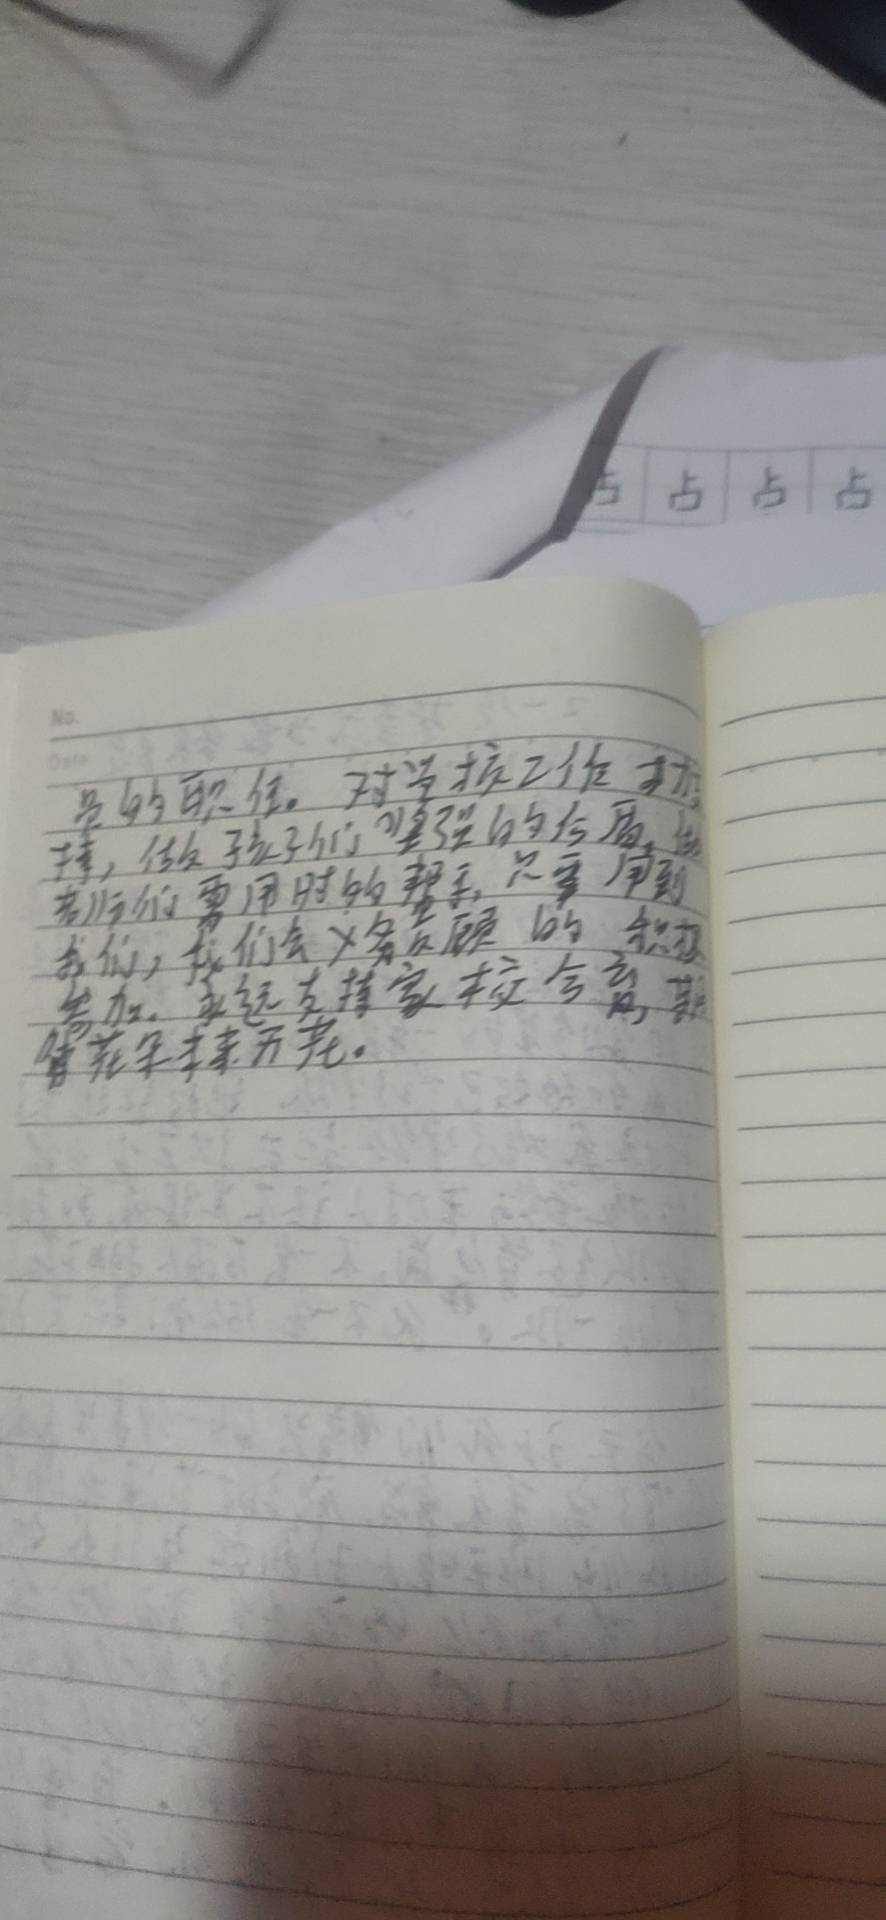 占 占 占 占
No.
Date
员的职任。对学校工作
持，做孩子们坚强的后盾，做
老师们需用时的帮手，只要用到
我们，我们会义务反顾的积极
参加。永远支持家校合育，期
待花朵未来开花。